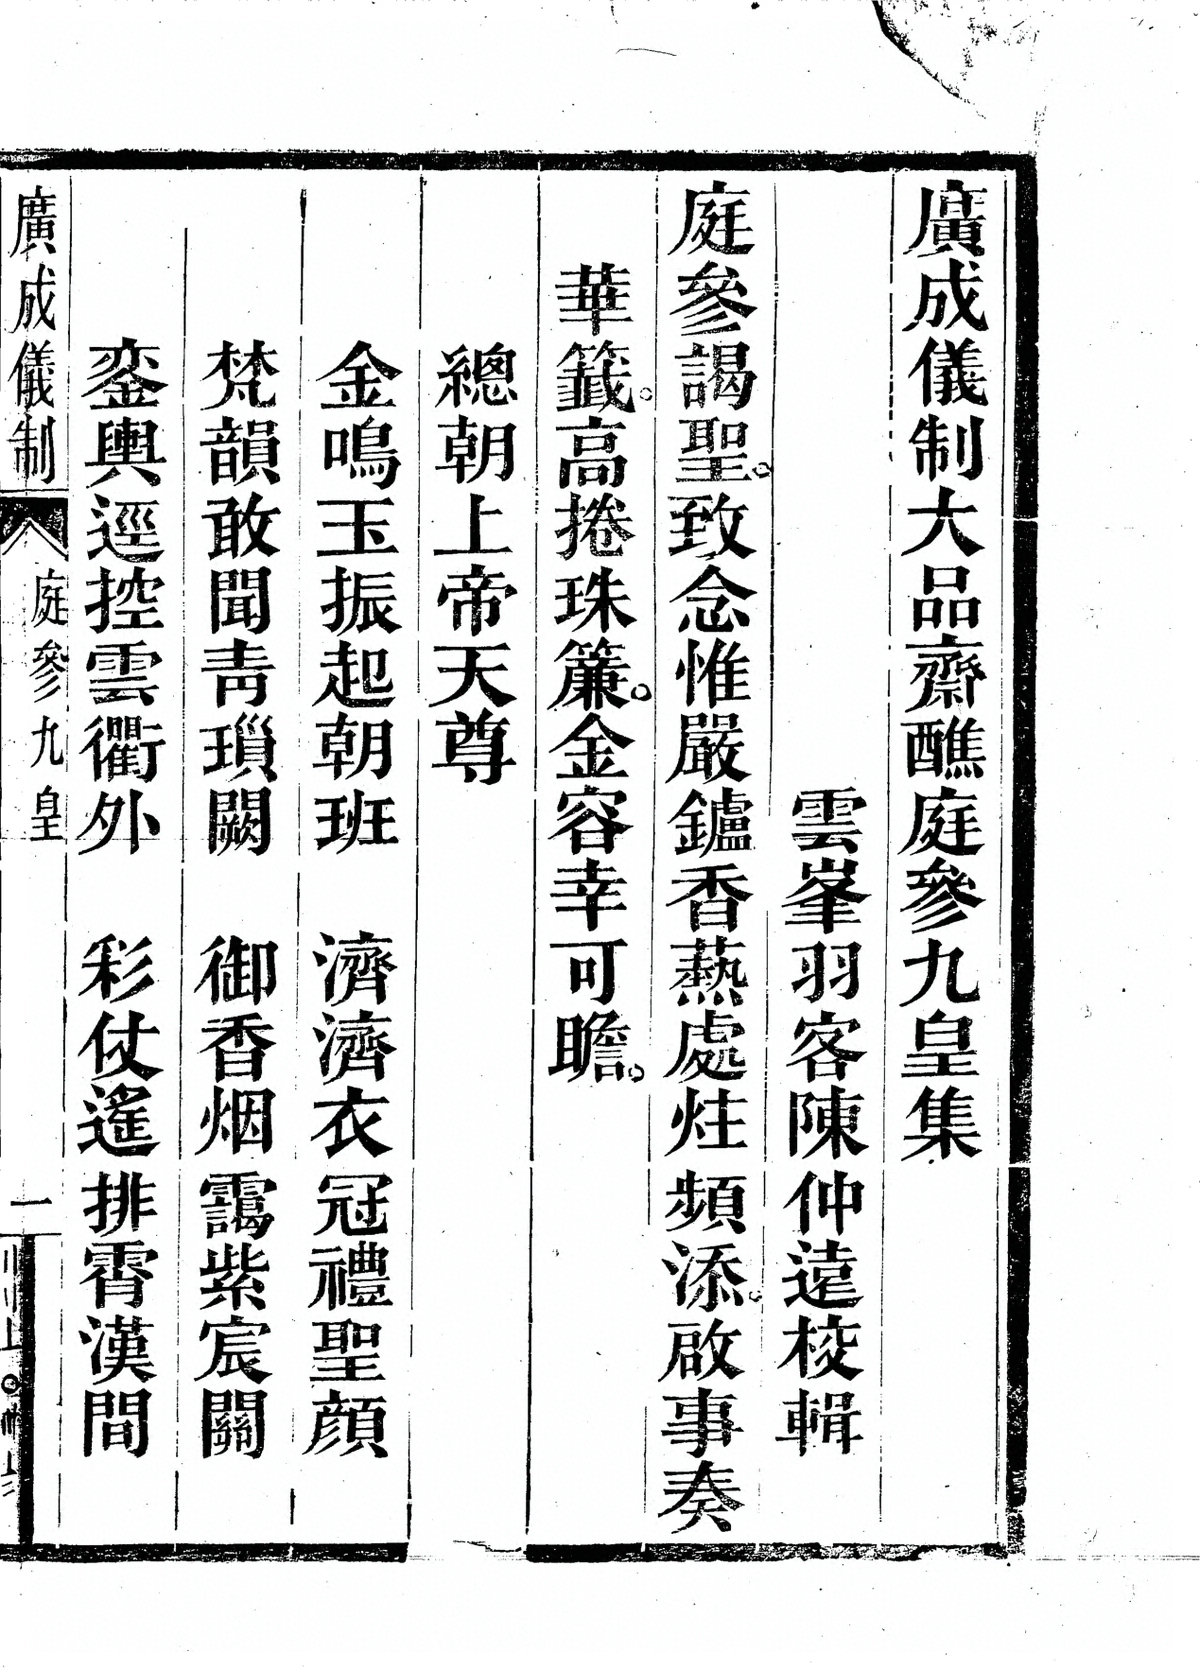 廣成儀制大品齋醮庭參九皇集
雲峯羽客陳仲遠校輯
庭參謁聖。致念惟嚴鑪香爇處炷頻添。啟事奏
華籤。高捲珠簾。金容幸可瞻。
總朝上帝天尊
金鳴玉振起朝班　濟濟衣冠禮聖顔
梵韻敢聞靑瑣闕　御香烟靄紫宸關
鑾輿逕控雲衢外　彩仗遙排霄漢間
廣成儀制　庭參九皇　一